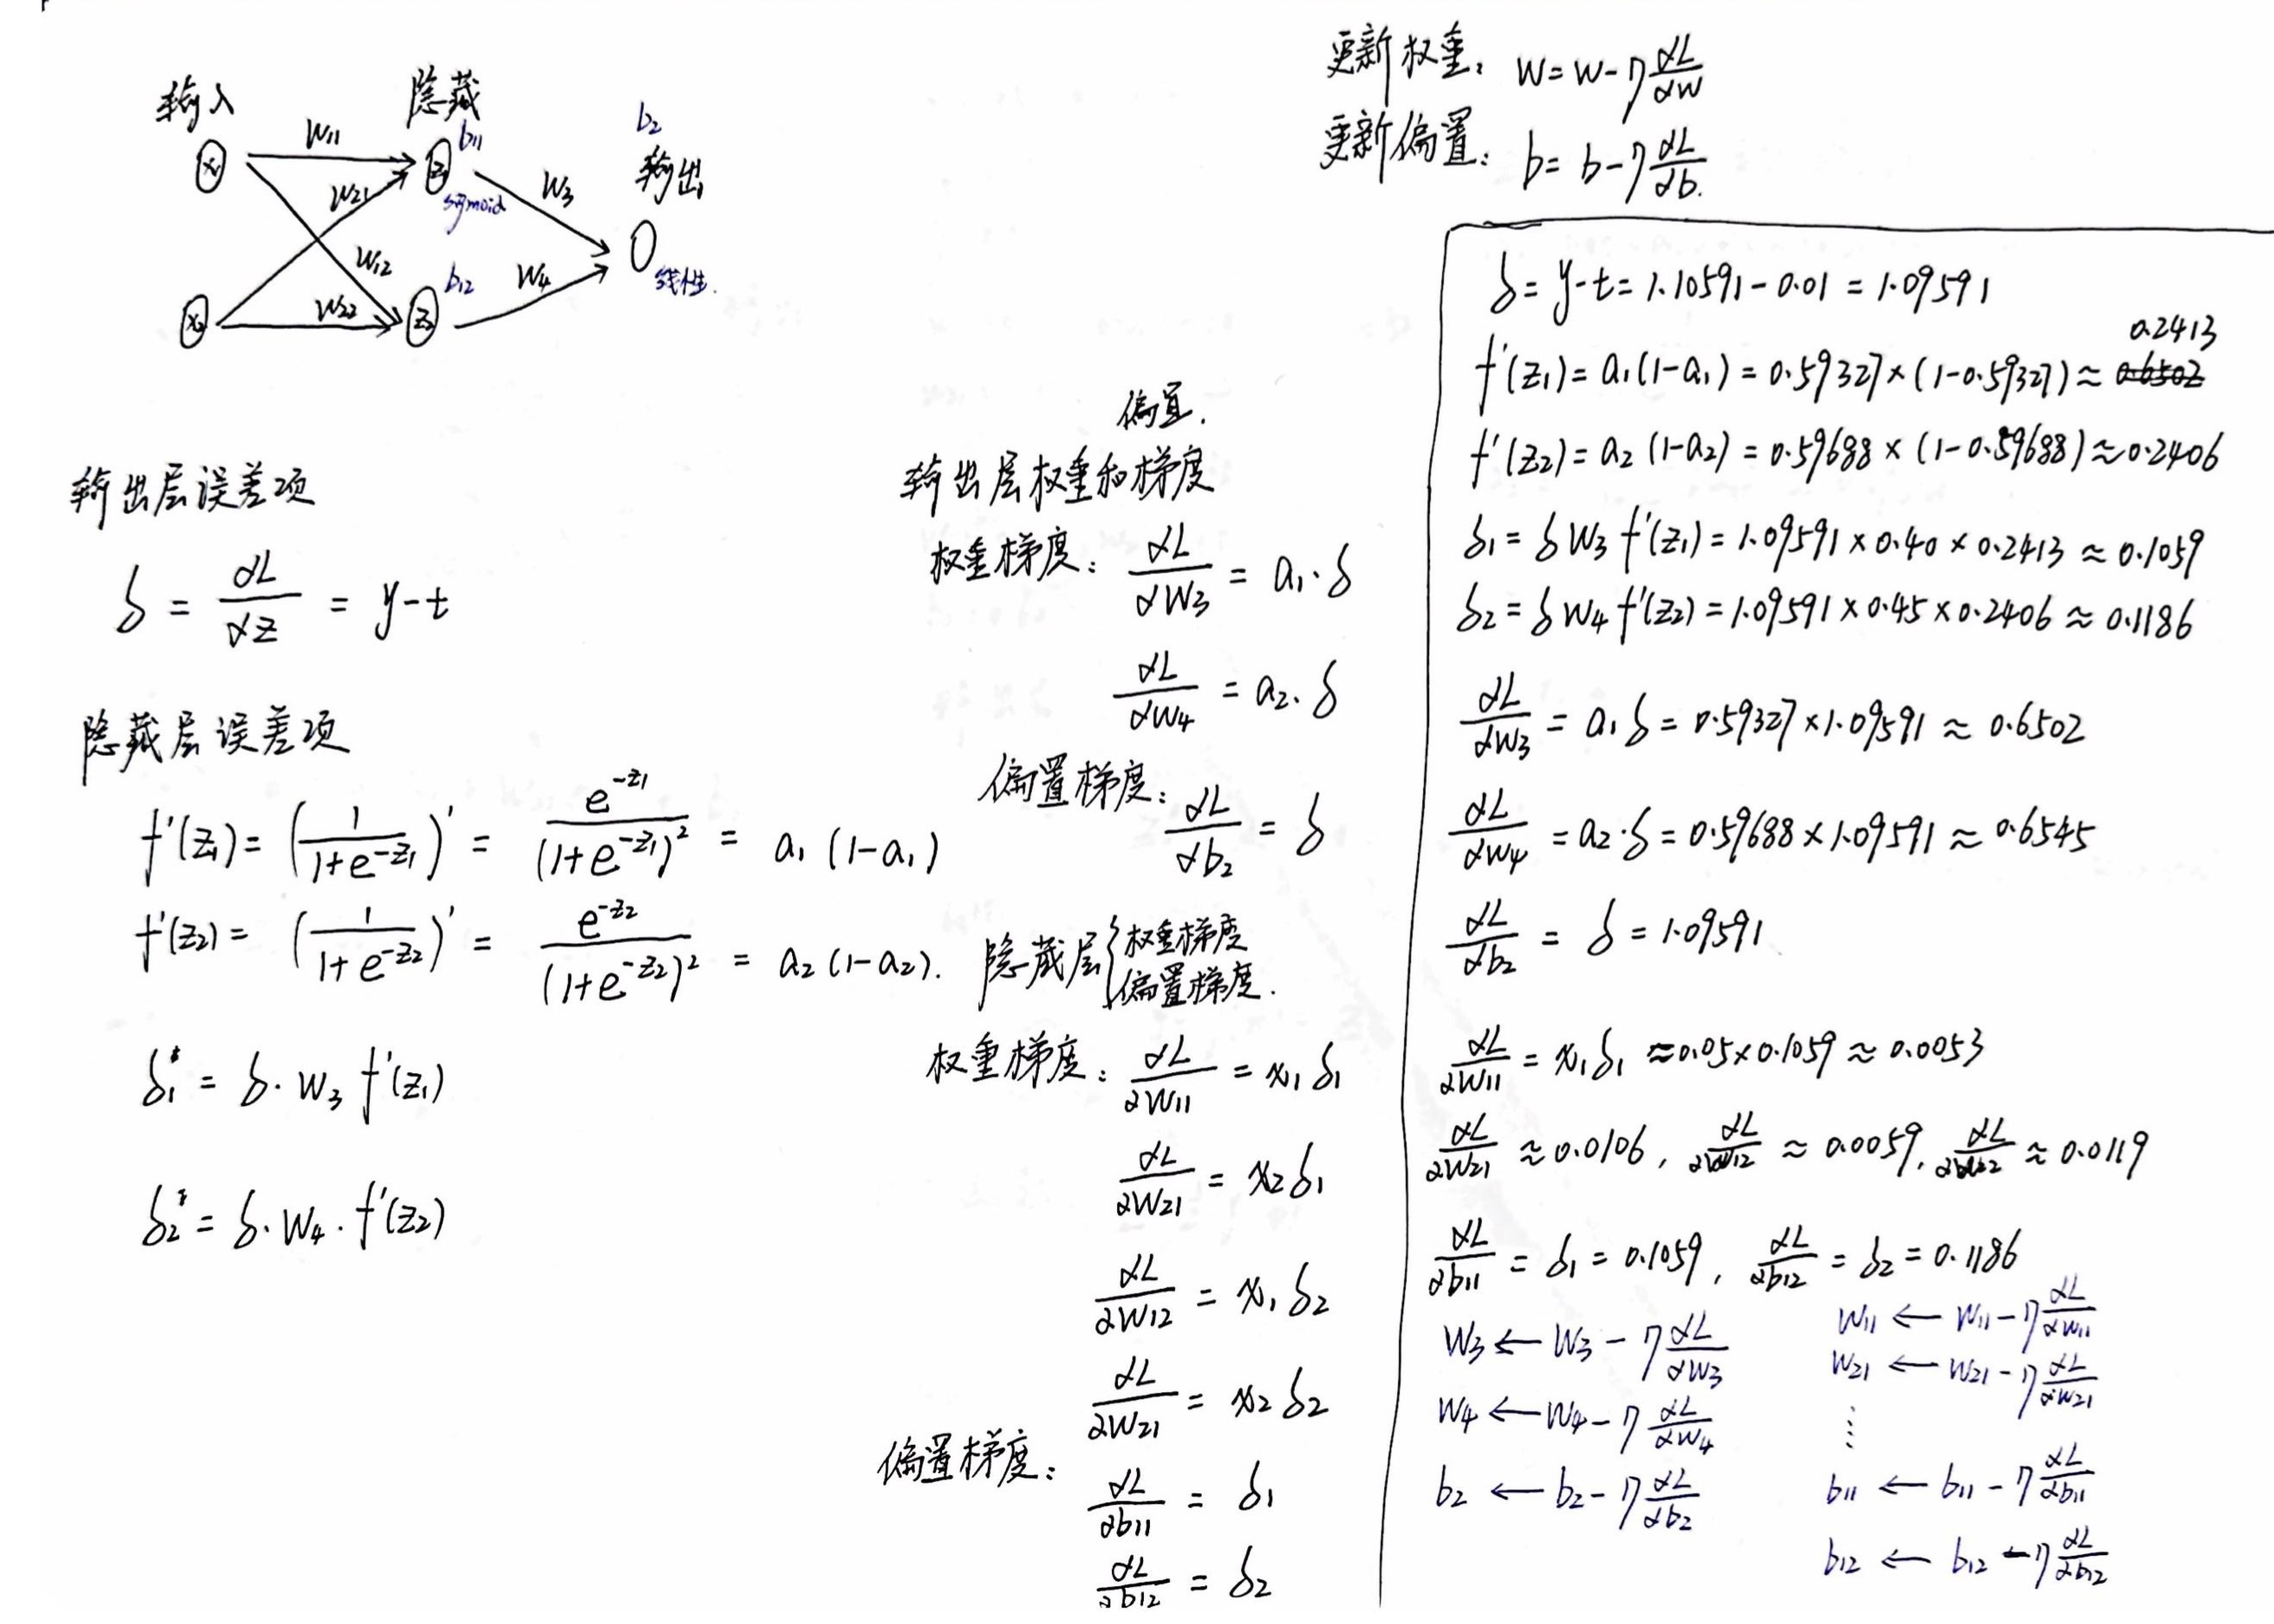 输入
隐藏
b₂
输出
x₁
w₁₁
z₁
b₁₁
sigmoid
w₂₁
w₃
w₁₂
线性.
x₂
w₂₂
z₂
b₁₂
w₄
输出层误差项
δ = αL/αz = y-t
隐藏层误差项
f'(z₁) = (1/(1+e^-z₁))' = e^-z₁/(1+e^-z₁)² = a₁(1-a₁)
f'(z₂) = (1/(1+e^-z₂))' = e^-z₂/(1+e^-z₂)² = a₂(1-a₂).
δ₁ = δ· w₃ f'(z₁)
δ₂ = δ· w₄ · f'(z₂)
偏置.
输出层权重和梯度
权重梯度: αL/αw₃ = a₁·δ
αL/αw₄ = a₂·δ
偏置梯度: αL/αb₂ = δ
隐藏层{权重梯度
偏置梯度.
权重梯度: αL/αw₁₁ = x₁δ₁
αL/αw₂₁ = x₂δ₁
αL/αw₁₂ = x₁δ₂
αL/αw₂₁ = x₂δ₂
偏置梯度: αL/αb₁₁ = δ₁
αL/αb₁₂ = δ₂
更新权重: w=w-η αL/αw
更新偏置: b= b-η αL/αb.
δ= y-t= 1.10591-0.01 = 1.09591
0.2413
f'(z₁)= a₁(1-a₁) = 0.59327×(1-0.59327) ≈ 0.6502
f'(z₂)= a₂(1-a₂) = 0.59688×(1-0.59688) ≈ 0.2406
δ₁= δw₃f'(z₁) = 1.09591×0.40×0.2413 ≈ 0.1059
δ₂= δw₄f'(z₂) = 1.09591×0.45×0.2406 ≈ 0.1186
αL/αw₃ = a₁δ = 0.59327×1.09591 ≈ 0.6502
αL/αw₄ = a₂·δ = 0.59688×1.09591 ≈ 0.6545
αL/αb₂ = δ = 1.09591
αL/αw₁₁ = x₁δ₁ ≈ 0.05×0.1059 ≈ 0.0053
αL/αw₂₁ ≈ 0.0106, αL/αw₁₂ ≈ 0.0059, αL/αw₂₂ ≈ 0.0119
αL/αb₁₁ = δ₁ = 0.1059, αL/αb₁₂ = δ₂ = 0.1186
w₃ ← w₃ - η αL/αw₃
w₄ ← w₄ - η αL/αw₄
b₂ ← b₂ - η αL/αb₂
w₁₁ ← w₁₁ - η αL/αw₁₁
w₂₁ ← w₂₁ - η αL/αw₂₁
⋮
b₁₁ ← b₁₁ - η αL/αb₁₁
b₁₂ ← b₁₂ - η αL/αb₁₂